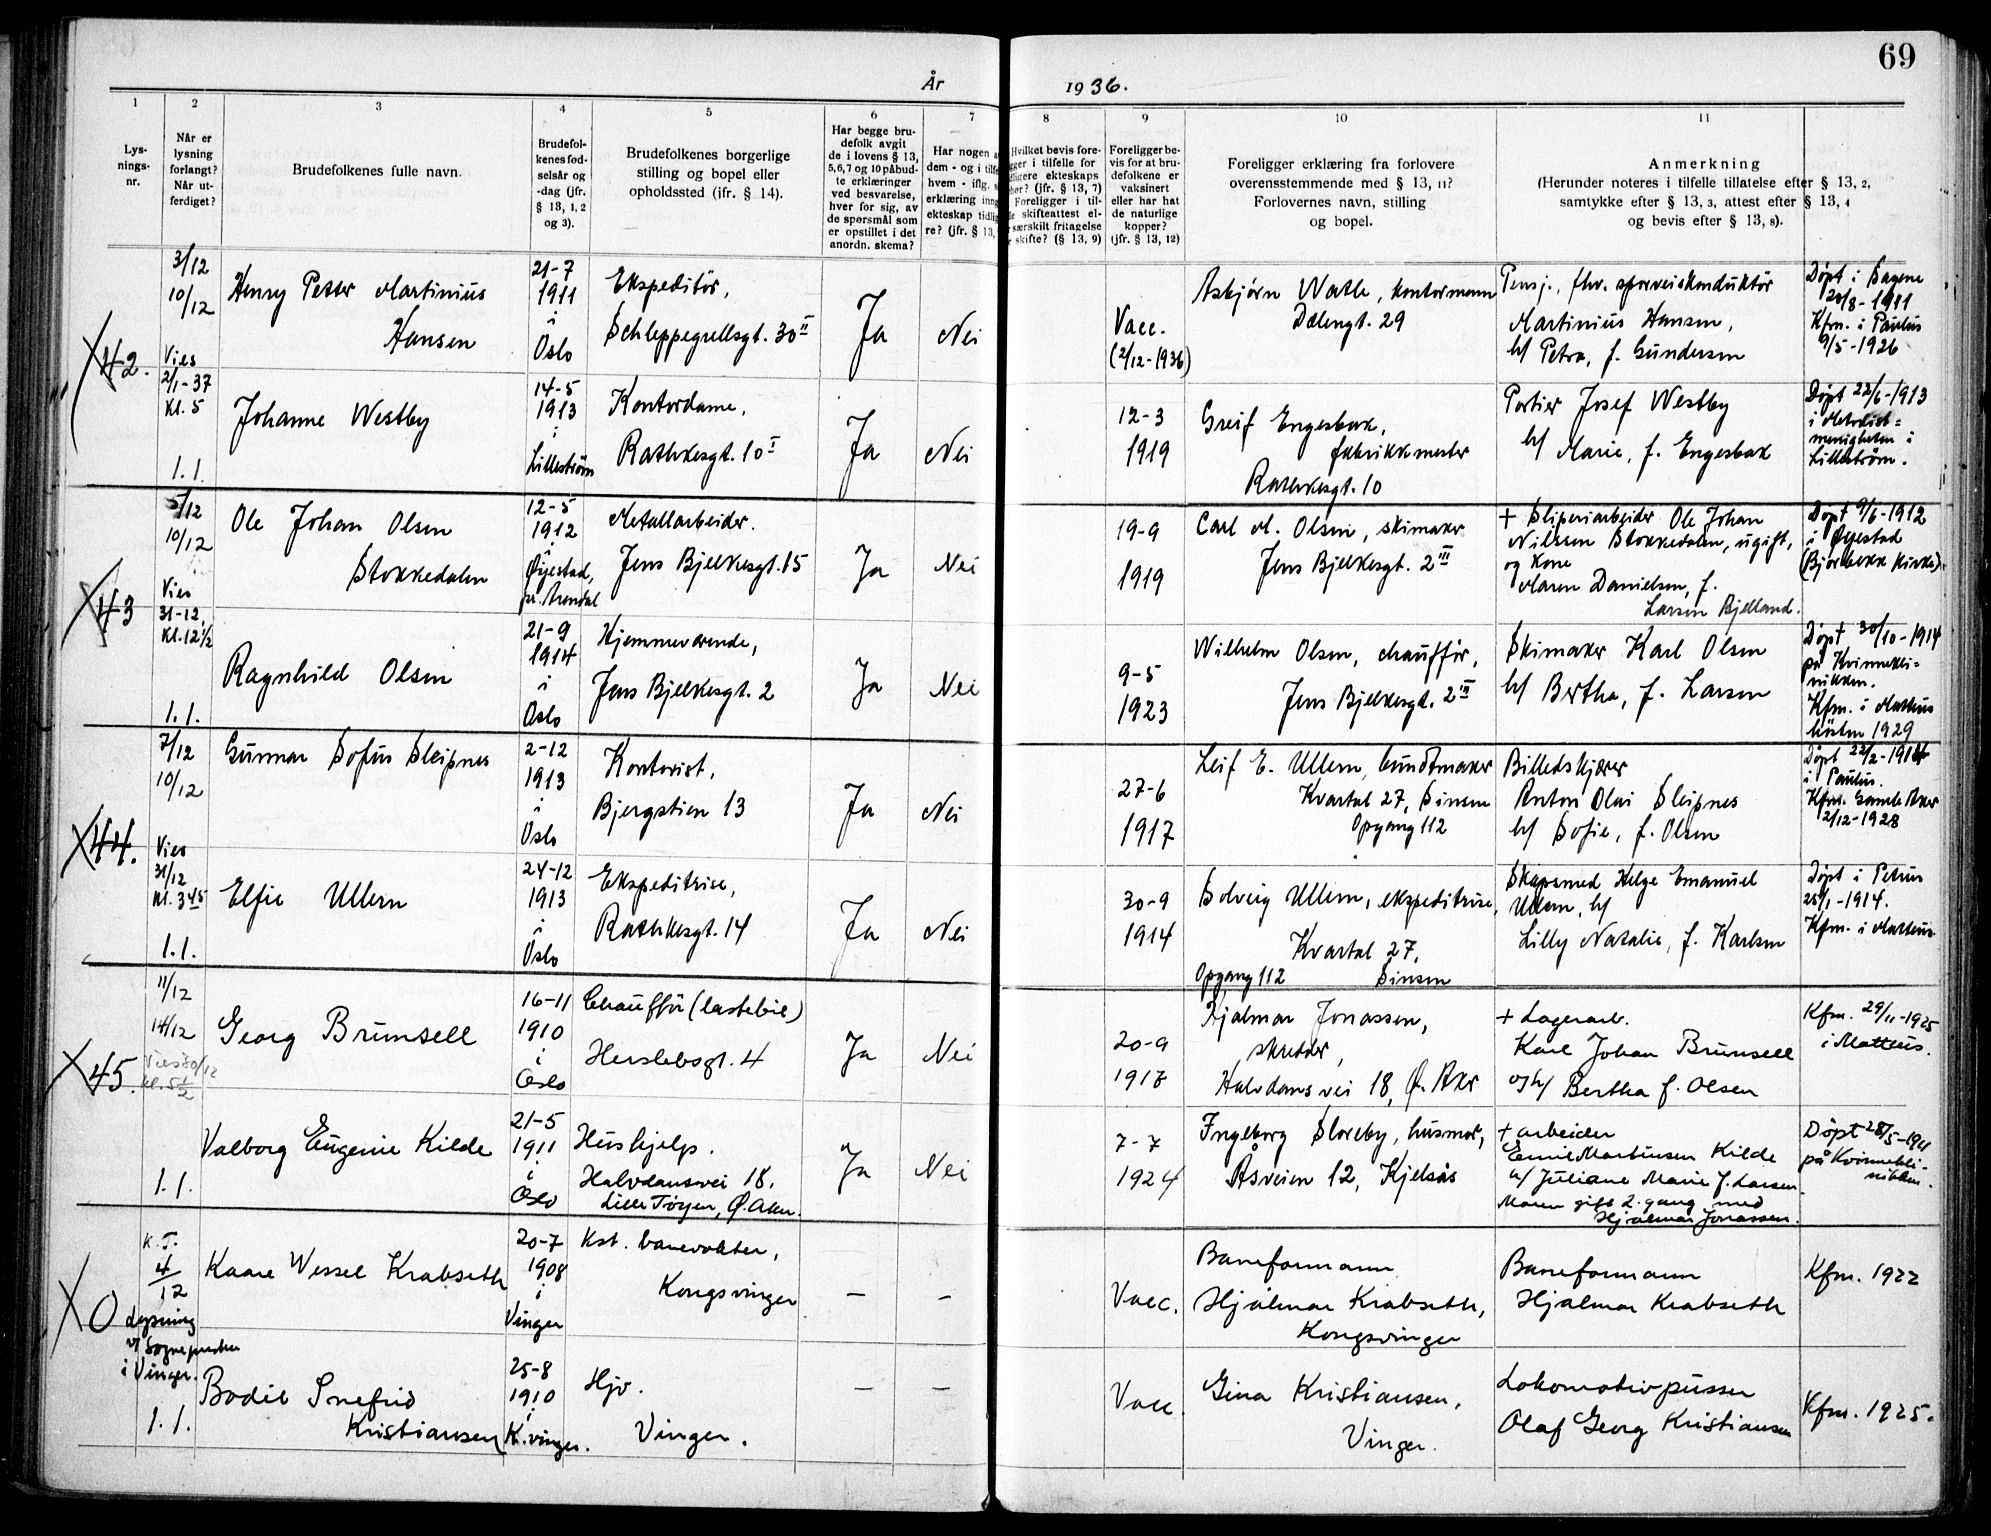 69
År 1936.
1 2 3 4 5 6 7 8 9 10 11
Lys-
nings-
nr.
Når er
lysning
forlangt?
Når ut-
ferdiget?
Brudefolkenes fulle navn.
Brudefol-
kenes fød-
selsår og
-dag (jfr.
§ 13, 1, 2
og 3).
Brudefolkenes borgerlige
stilling og bopel eller
opholdssted (ifr. § 14).
Har begge bru-
defolk avgit
de i lovens § 13,
5,6,7 og 10 påbud-
te erklæringer
ved besvarelse,
hver for sig, av
de spørsmål som
er opstillet i det
anordn. skema?
Har nogen
dem - og i
hvem - iflg.
erklæring
ekteskap
re? (jfr. § 13,
Hvilket bevis fore-
i tilfelle for
ekteskaps
(jfr. § 13, 7)
Foreligger i til-
skifteattest el-
særskilt fritagelse
skifte? (§ 13, 9)
Foreligger be-
vis for at bru-
defolkene er
vaksinert
eller har hat
de naturlige
kopper?
(jfr. § 13, 12)
Foreligger erklæring fra forlovere
overensstemmende med § 13, 11?
Forlovernes navn, stilling
og bopel.
Anmerkning
(Herunder noteres i tilfelle tillatelse efter § 13, 2,
samtykke efter § 13, 3, attest efter § 13, 4
og bevis efter § 13, 8).
42.
3/12
10/12
Vies
2/1-37
Kl. 5
1.1.
Henry Petter Martinius
Hansen
21-7
1911
i
Oslo
Ekspeditør,
Schleppegrellsgt. 30 II
Ja
Nei
Vacc.
(2/12-1936)
Asbjørn Watle, kontormann
Dælengt. 29
Pensj., fhv. sporveiskonduktør
Martinius Hansen,
h/ Petra, f. Gundersen
Døpt i Sagene
20/8-1911
Kfm. i Paulus
9/5-1926
Johanne Westby
14-5
1913
i
Lillestrøm
Kontordame,
Rathkesgt. 10 I
Ja
Nei
12-3
1919
Greif Engesbak,
fabrikkmester
Rathkesgt. 10
Portier Josef Westby
h/ Marie, f. Engesbak
Døpt 22/6-1913
i Metodist=
menigheten i
Lillestrøm.
43
5/12
10/12
Vies
31-12,
Kl. 12 1/2
1.1.
Ole Johan Olsen
Stokkedalen
12-5
1912
i
Øyestad,
pr. Arendal
Metallarbeider.
Jens Bjelkesgt. 15
Ja
Nei
19-9
1919
Carl M. Olsen, skimaker
Jens Bjelkesgt. 2 III
+ Sliperiarbeider Ole Johan
Nilssen Stokkedalen, ugift,
og kone
Maren Danielsen, f.
Larsen Bjelland.
Døpt 9/6-1912
i Øyestad
(Bjorbekk kirke).
Ragnhild Olsen
21-9
1914
i
Oslo
Hjemmeværende,
Jens Bjelkesgt. 2
Ja
Nei
9-5
1923
Wilhelm Olsen, chauffør,
Jens Bjelkesgt. 2 III
Skimaker Karl Olsen
h/ Bertha, f. Larsen
Døpt 30/10-1914
på Kvinnekli-
nikken.
Kfm. i Matteus
høsten 1929
44.
7/12
10/12
Vies
31/12
Kl. 3 45
1.1.
Gunnar Sofus Sleipnes
2-12
1913
i
Oslo
Kontorist,
Bjergstien 13
Ja
Nei
27-6
1917
Leif E. Ullern, buntmaker
Kvartal 27, Sinsen
Opgang 112
Billedskjærer
Anton Olai Sleipnes
h/ Sofie, f. Olsen
Døpt 22/2-1914
i Paulus.
Kfm. Gamle Aker
2/12-1928
Elfie Ullern
24-12
1913
i
Oslo
Ekspeditrise,
Rathkesgt. 14
Ja
Nei
30-9
1914
Solveig Ullern, ekspeditrise,
Kvartal 27,
Opgang 112 Sinsen
Skapsmed Helge Emanuel
Ullern, h/
Lilly Natalie, f. Karlsen
Døpt i Petrus
25/1-1914.
Kfm. i Matteus
45.
11/12
14/12
Vies 30/12
kl. 5 1/2
1.1.
Georg Brunsell
16-11
1910
i
Oslo
Chauffør (lastebil)
Herslebsgt. 4
Ja
Nei
20-9
1917
Hjalmar Jonassen,
skredder,
Halvdans vei 18, Ø. Aker
+ Lagerarb.
Karl Johan Brunsell
og h/ Bertha f. Olsen
Kfm. 29/11-1925
i Matteus.
Valborg Eugenie Kilde
21-5
1911
i
Oslo
Hushjelp.
Halvdansvei 18.
Lille Tøyen, Ø. Aker.
Ja
Nei
7-7
1924
Ingeborg Sloreby, husmor,
Åsveien 12, Kjelsås
+ arbeider
Emil Martinsen Kilde
h/ Juliane Marie f. Larsen.
Moren gift 2. gang med
Hjalmar Jonassen.
Døpt 28/5-1911
på Kvinnekli-
nikken.
0
K.T.
4/12
Lysning
v/ Sognepresten
i Vinger.
1.1.
Kaare Wessel Krabseth
20-7
1908
i
Vinger
Kst. banevokter,
Kongsvinger
—
—
Vacc.
Baneformann
Hjalmar Krabseth,
Kongsvinger
Baneformann
Hjalmar Krabseth
Kfm. 1922
Bodil Snefrid
Kristiansen
25-8
1910
i
K.vinger.
Hjv.
Vinger.
—
—
Vacc.
Gina Kristiansen,
Vinger.
Lokomotivpusser
Olaf Georg Kristiansen
Kfm. 1925.